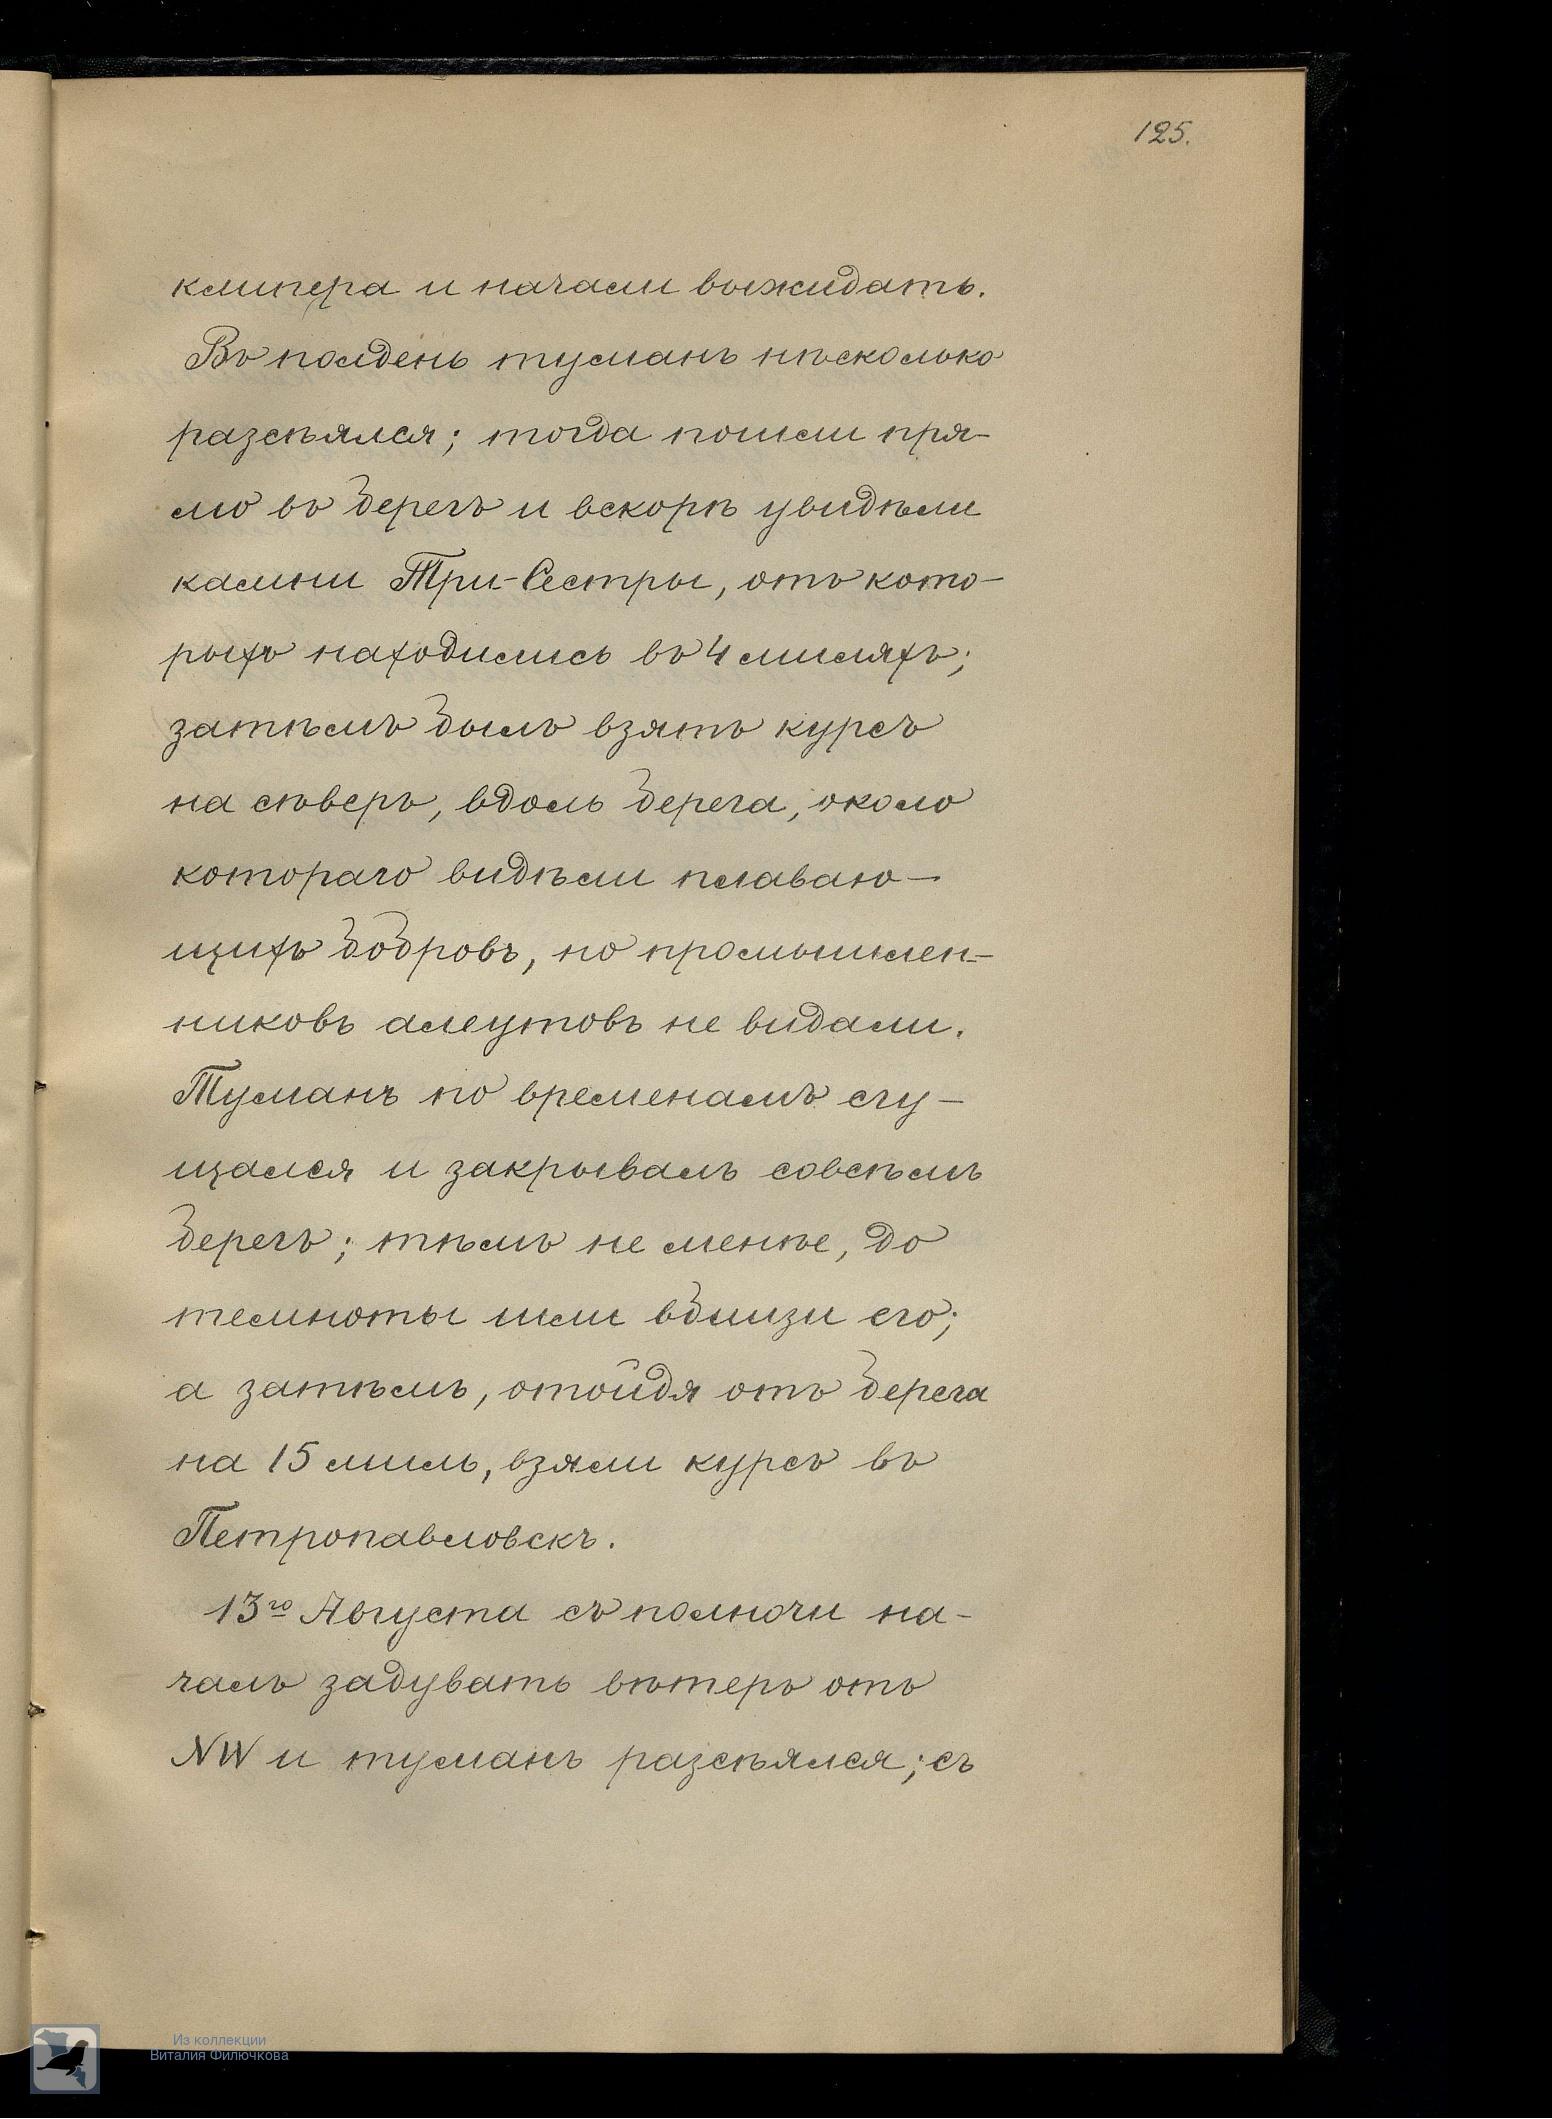 125.
клипера и начали выжидать.
Въ полдень туманъ нѣсколько
разсѣялся; тогда пошли пря-
мо въ берегъ и вскорѣ увидѣли
камни Три-Сестры, отъ кото-
рыхъ находились въ 4 миляхъ;
затѣмъ былъ взятъ курсъ
на сѣверъ, вдоль берега, около
котораго видѣли плаваю-
щихъ бобровъ, но промышлен-
никовъ алеутовъ не видали.
Туманъ по временамъ сгу-
щался и закрывалъ совсѣмъ
берегъ; тѣмъ не менѣе, до
темноты шли вблизи его;
а затѣмъ, отойдя отъ берега
на 15 миль, взяли курсъ въ
Петропавловскъ.
13го Августа съ полночи на-
чалъ задувать вѣтеръ отъ
NW и туманъ разсѣялся; съ
Из коллекции
Виталия Филючкова